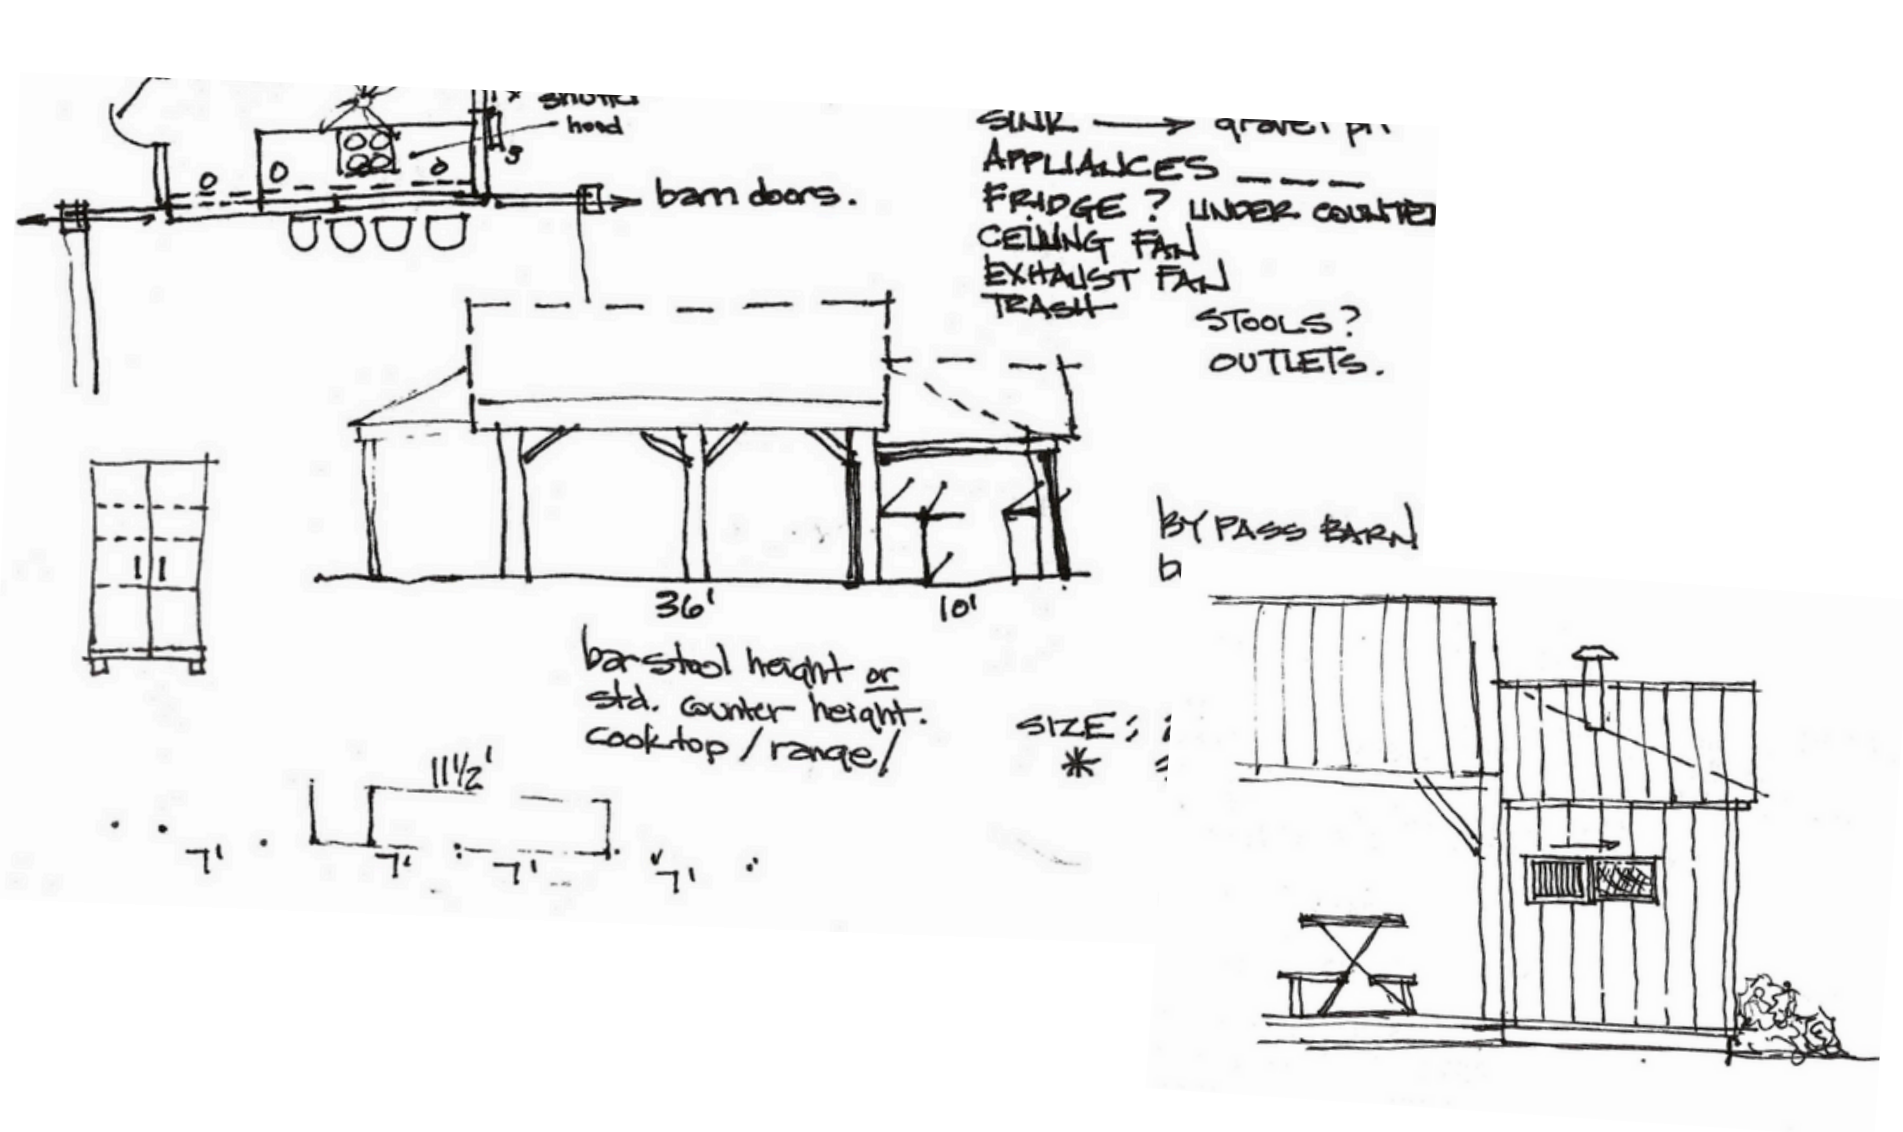 hood
barn doors.
SINK → gravel pit
APPLIANCES _ _ _
FRIDGE ? UNDER COUNTER
CEILING FAN
EXHAUST FAN
TRASH
STOOLS?
OUTLETS.
BYPASS BARN
36'
10'
barstool height or
std. counter height.
cooktop / range/
SIZE:
*
11 1/2'
7'
7'
7'
7'